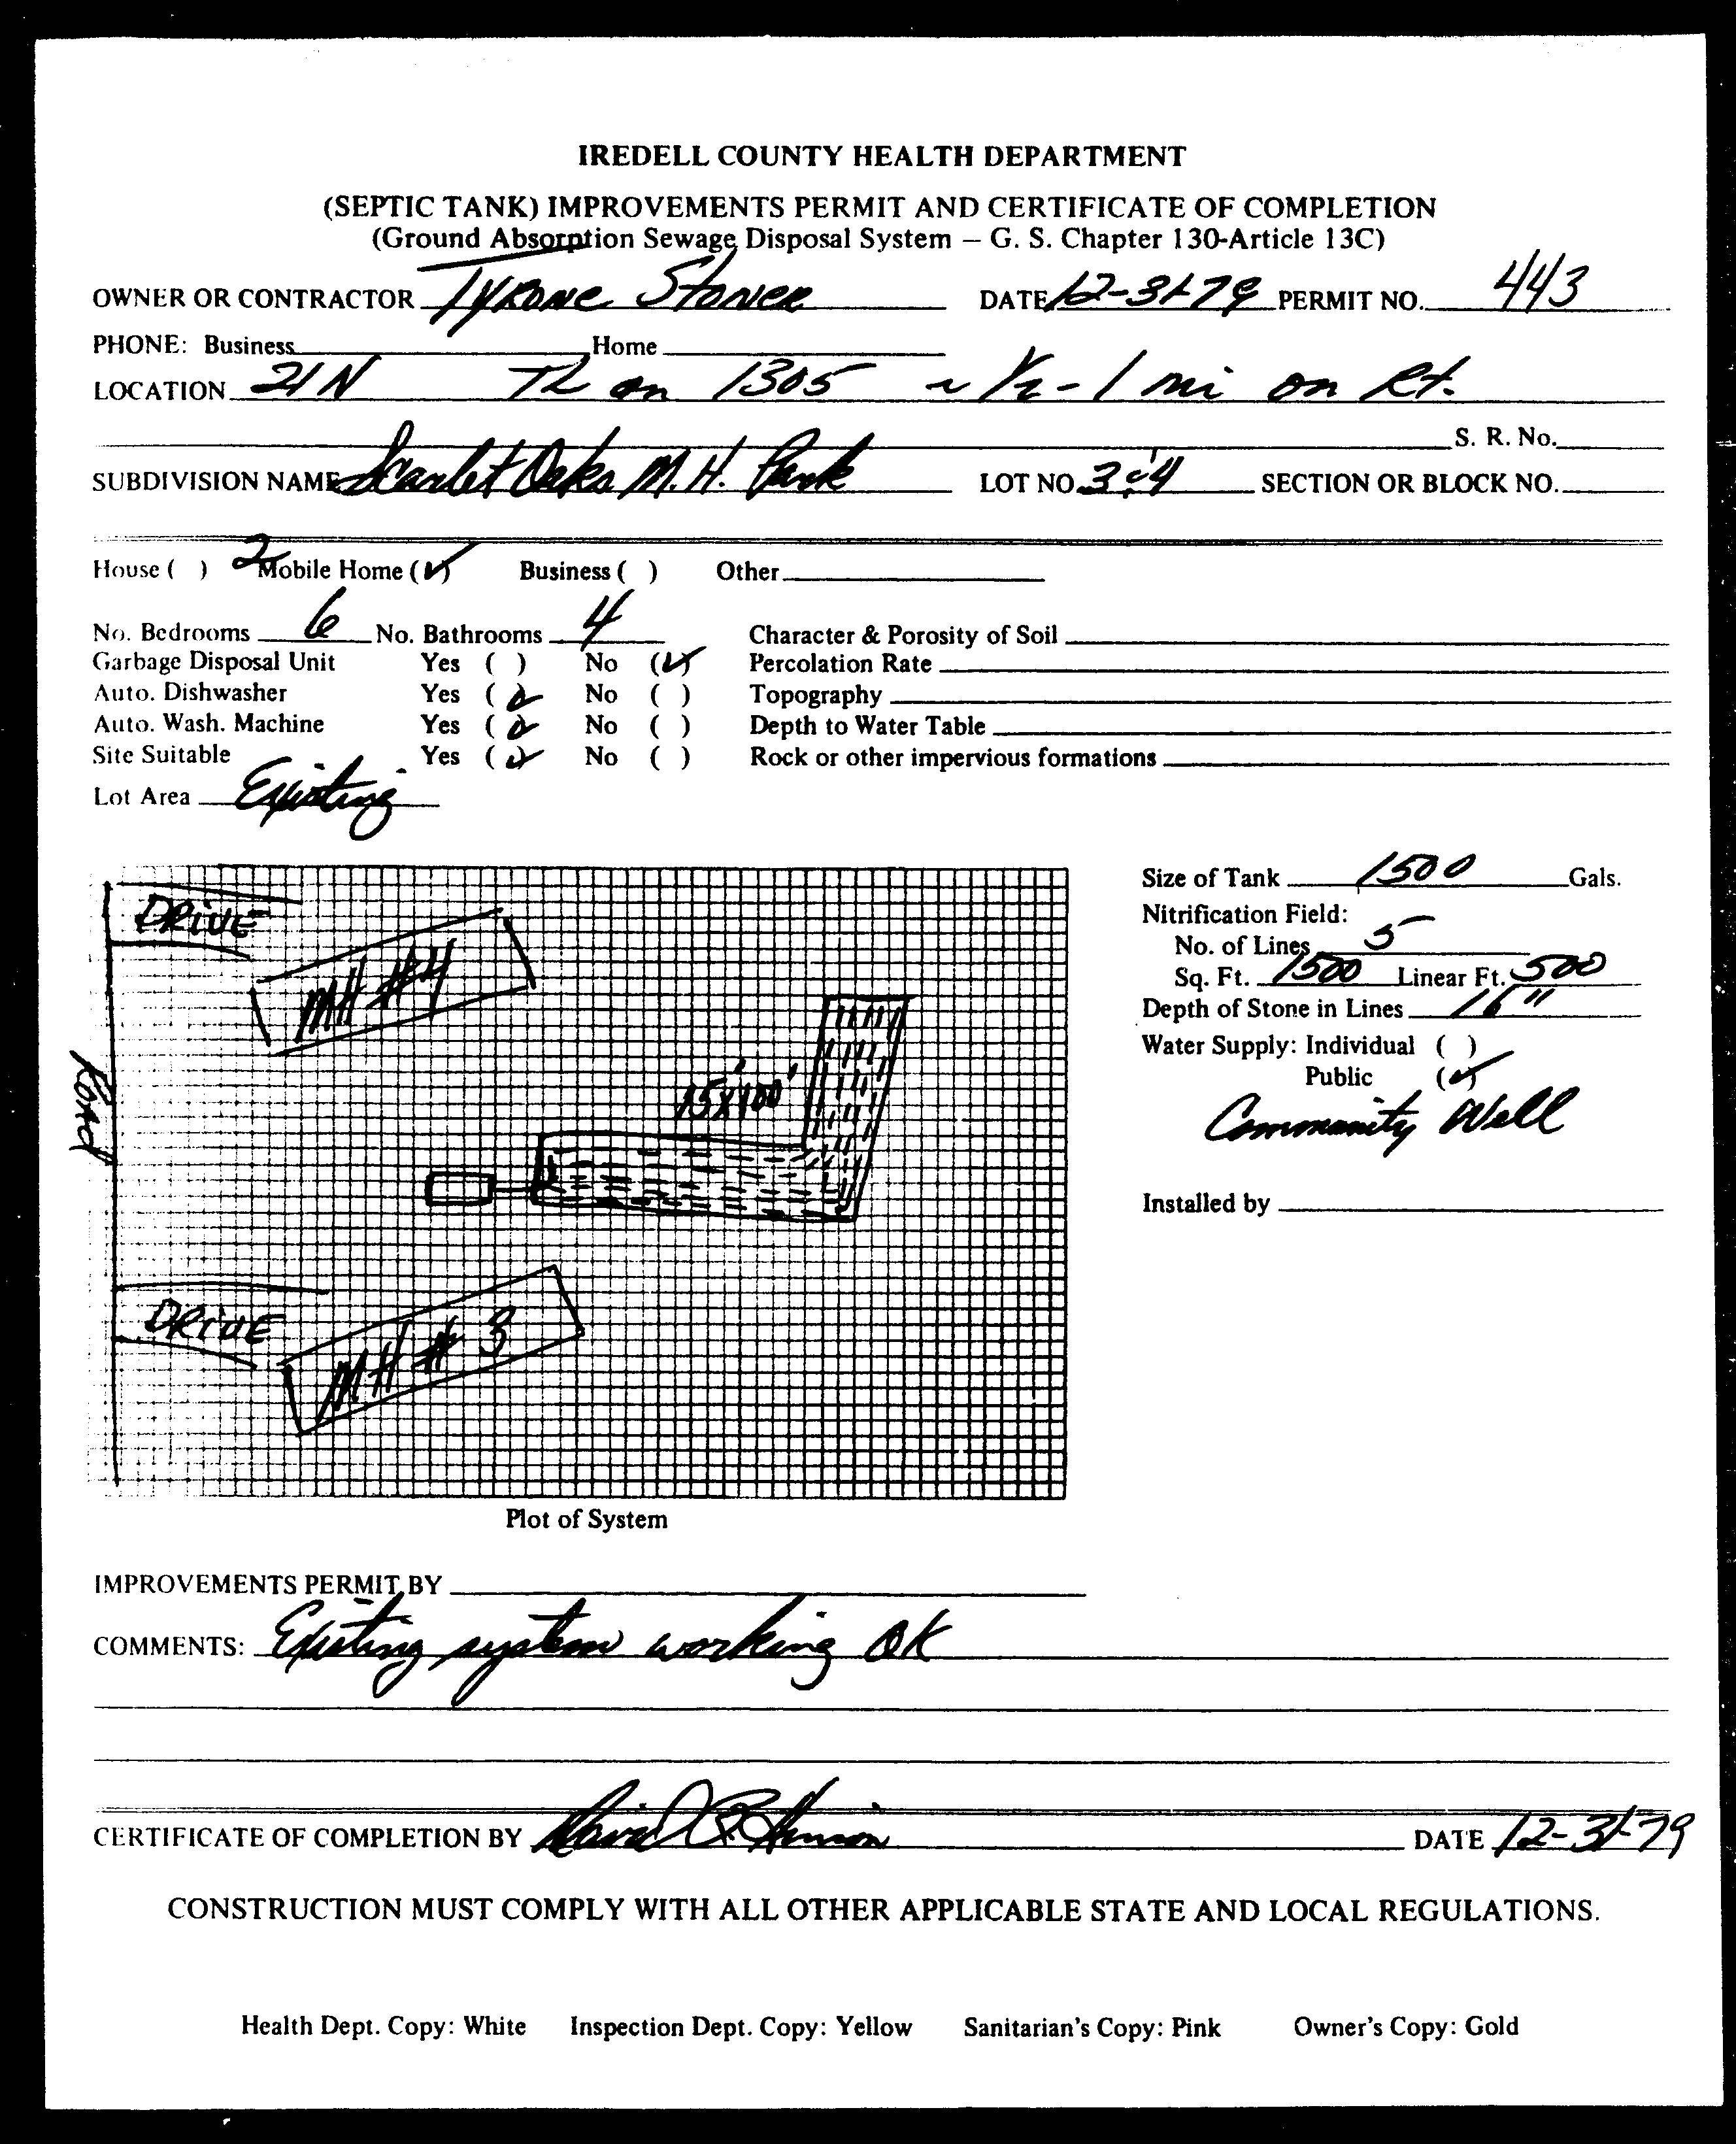 IREDELL COUNTY HEALTH DEPARTMENT
(SEPTIC TANK) IMPROVEMENTS PERMIT AND CERTIFICATE OF COMPLETION
(Ground Absorption Sewage Disposal System — G. S. Chapter 130-Article 13C)
OWNER OR CONTRACTOR Tyrone Stoner DATE 12-31-79 PERMIT NO. 443
PHONE: Business Home
LOCATION 21N TL on 1305 ~ 1/2 - 1 mi on Rt.
S. R. No.
SUBDIVISION NAME Scarlet Oaks M. H. Park LOT NO. 3 & 4 SECTION OR BLOCK NO.
House ( ) 2 Mobile Home (✓) Business ( ) Other
No. Bedrooms 6 No. Bathrooms 4 Character & Porosity of Soil
Garbage Disposal Unit Yes ( ) No (✓) Percolation Rate
Auto. Dishwasher Yes (2) No ( ) Topography
Auto. Wash. Machine Yes (2) No ( ) Depth to Water Table
Site Suitable Yes (✓) No ( ) Rock or other impervious formations
Lot Area Existing
Size of Tank 1500 Gals.
Nitrification Field:
No. of Lines 5
Sq. Ft. 1500 Linear Ft. 500
Depth of Stone in Lines 16"
Water Supply: Individual ( )
Public (✓)
Community Well
Installed by
DRIVE
MH #4
Road
15' x 100'
DRIVE
MH # 3
Plot of System
IMPROVEMENTS PERMIT BY
COMMENTS: Existing system working OK
CERTIFICATE OF COMPLETION BY DATE 12-31-79
CONSTRUCTION MUST COMPLY WITH ALL OTHER APPLICABLE STATE AND LOCAL REGULATIONS.
Health Dept. Copy: White Inspection Dept. Copy: Yellow Sanitarian's Copy: Pink Owner's Copy: Gold